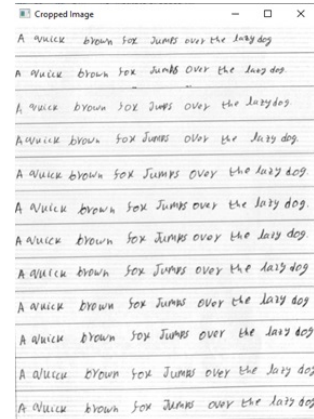 Cropped Image
A quick brown fox Jumps over the lazy dog
A quick brown fox Jumps over the lazy dog.
A quick brown fox Jumps over the lazy dog.
A quick brown fox Jumps over the lazy dog.
A quick brown fox Jumps over the lazy dog.
A quick brown fox Jumps over the lazy dog.
A quick brown fox Jumps over the lazy dog.
A quick brown fox Jumps over the lazy dog
A quick brown fox Jumps over the lazy dog
A quick brown fox Jumps over the lazy dog
A quick brown fox Jumps over the lazy dog
A quick brown fox Jumps over the lazy dog